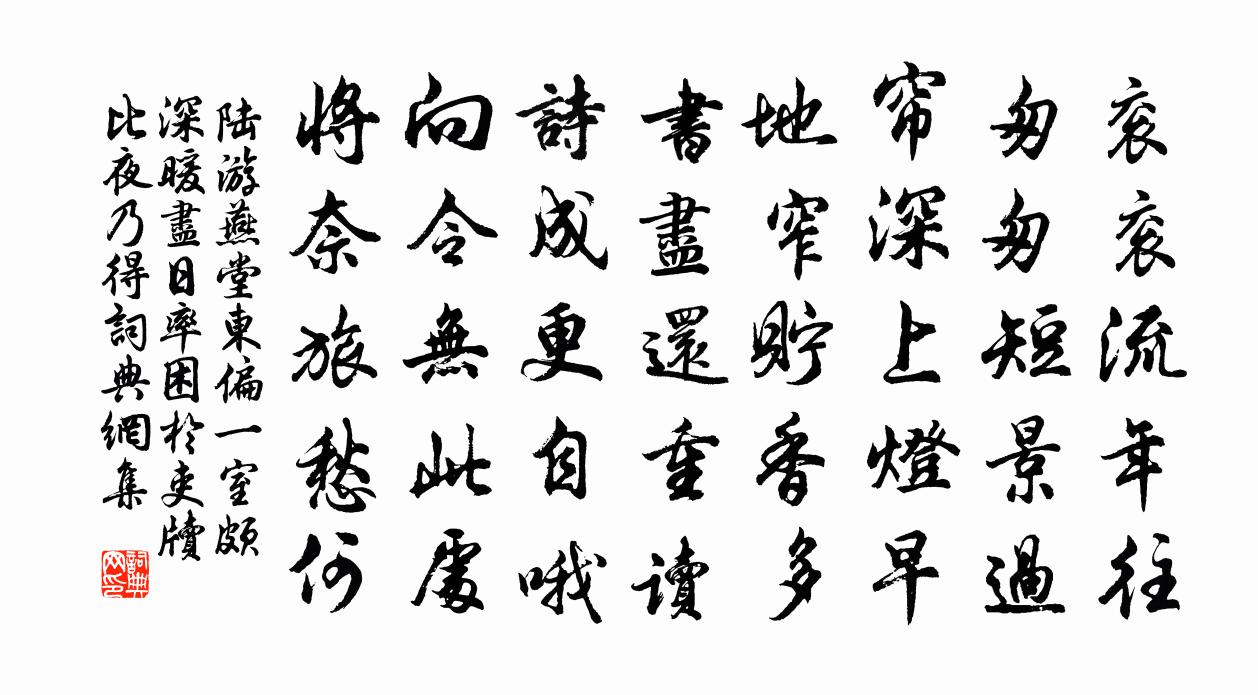 衮衮流年往
匆匆短景過
帘深上燈早
地窄貯香多
書盡還重讀
詩成更自哦
向令無此處
將奈旅愁何
陆游燕堂東偏一室頗
深暖盡日率困於吏牘
比夜乃得詞典網集
詞典网印